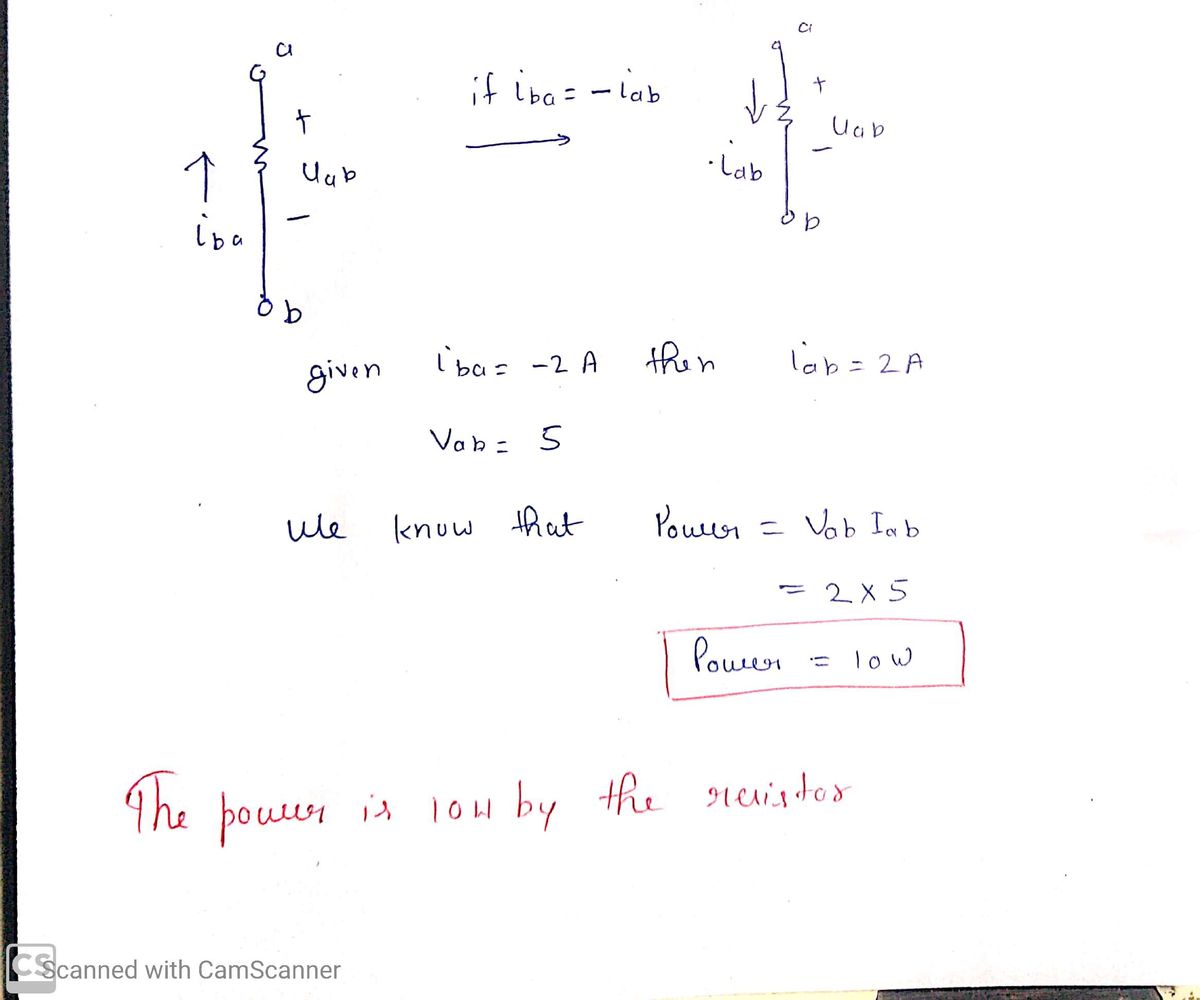 a
+
uab
−
iba
b
if iba = − iab
a
+
uab
−
iab
b
given iba = -2 A then iab = 2A
Vab = 5
We know that Power = Vab Iab
= 2 x 5
Power = 10W
The power is 10W by the resistor
CS
Scanned with CamScanner